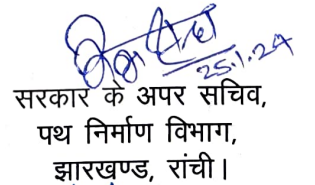 25.1.24
सरकार के अपर सचिव,
पथ निर्माण विभाग,
झारखण्ड, रांची।